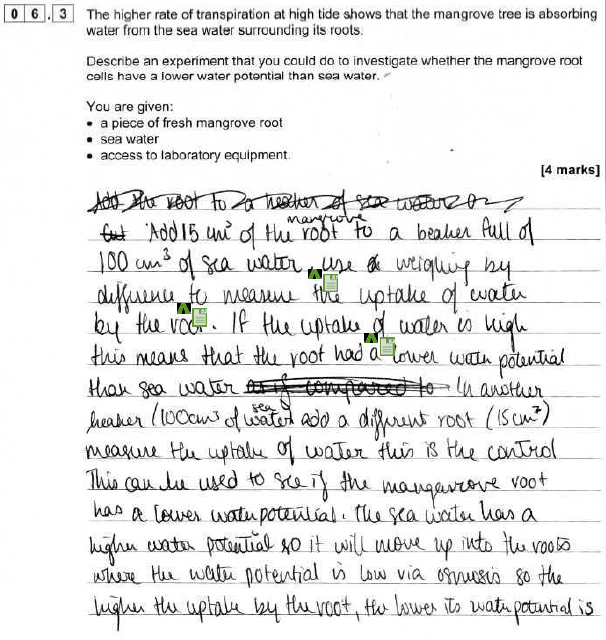 0 6 . 3 The higher rate of transpiration at high tide shows that the mangrove tree is absorbing
water from the sea water surrounding its roots.
Describe an experiment that you could do to investigate whether the mangrove root
cells have a lower water potential than sea water.
You are given:
• a piece of fresh mangrove root
• sea water
• access to laboratory equipment.
[4 marks]
Add the root to a beaker of sea water
mangrove
Add 15 cm³ of the root to a beaker full of
100 cm³ of sea water, use weighing by
difference to measure the uptake of water
by the root. If the uptake of water is high
this means that the root had a lower water potential
than sea water as if compared to In another
sea
beaker (100cm³ of water add a different root (15cm³)
measure the uptake of water this is the control
This can be used to see if the mangavrove root
has a lower water potential. The sea water has a
higher water potential so it will move up into the roots
where the water potential is low via osmosis so the
higher the uptake by the root, the lower its water potential is